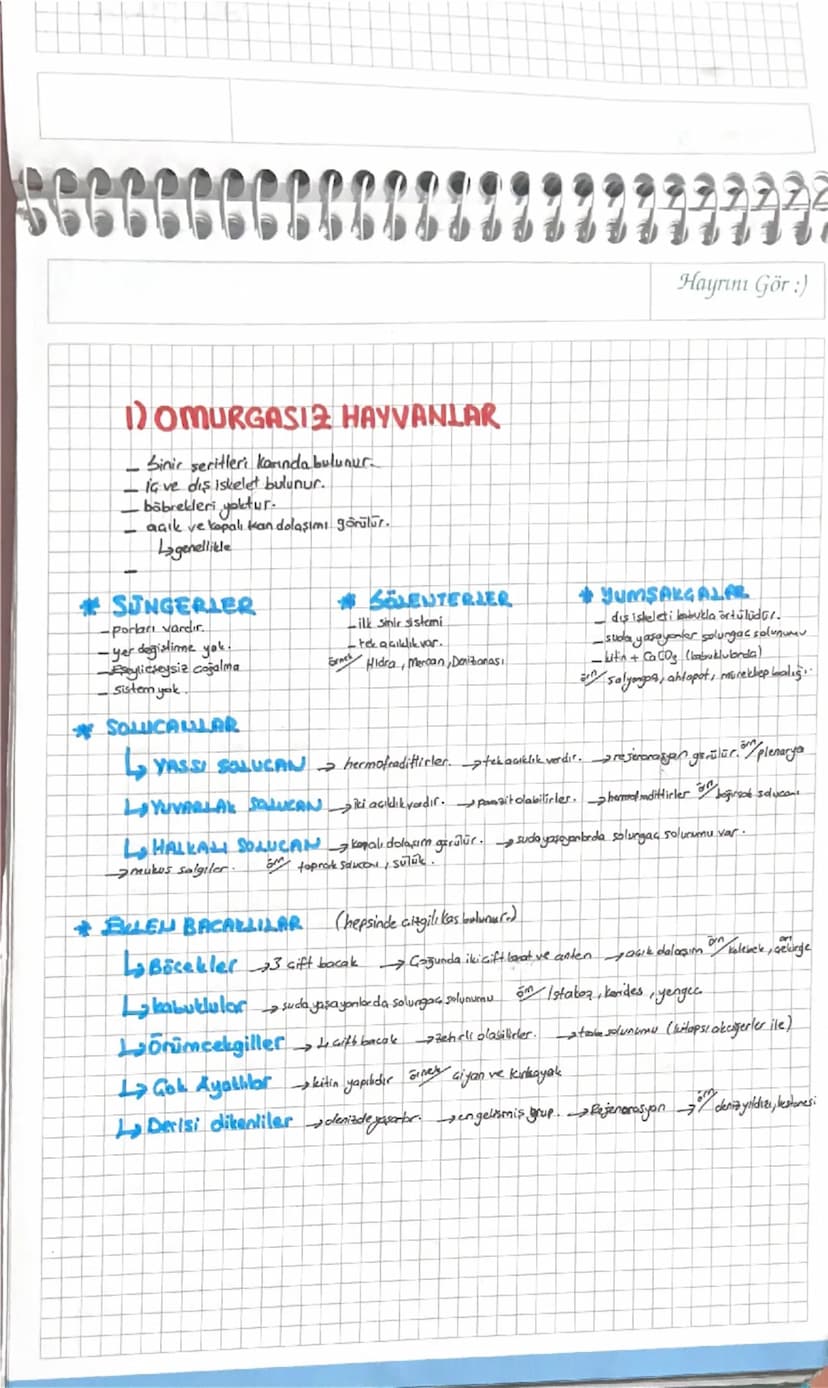 Hayrını Gör :)
1) OMURGASIZ HAYVANLAR
– Sinir şeritleri karında bulunur.
– iç ve dış iskelet bulunur.
– böbrekleri yoktur.
– açık ve kapalı kan dolaşımı görülür.
↳ genellikle
–
* SÜNGERLER
– porları vardır.
– yer değiştirme yok.
– Eşeyli eşeysiz çoğalma
– sistem yok.
* SÖLENTERLER
– ilk sinir sistemi
– tek açıklık var.
örnek/ Hidra, Mercan, Denizanası
* YUMŞAKÇALAR
– dış iskeleti kabukla örtülüdür.
– suda yaşayanlar solungaç solunumu
– kitin + CaCO3 (kabuklularda)
örn/ salyangoz, ahtapot, mürekkep balığı.
* SOLUCANLAR
↳ YASSI SOLUCAN → hermofradittirler. → tek açıklık vardır. → rejenerasyon görülür. örn/ plenarya
↳ YUVARLAK SOLUCAN → iki açıklık vardır. → parazit olabilirler. → hermofradittirler örn/ bağırsak solucanı
↳ HALKALI SOLUCAN → kapalı dolaşım görülür. → suda yaşayanlarda solungaç solunumu var.
→ mukus salgılar. örn/ toprak solucanı, sülük.
* EKLEM BACAKLILAR (hepsinde çizgili kas bulunur.)
↳ Böcekler → 3 çift bacak → Çoğunda iki çift kanat ve anten → açık dolaşım örn/ kelebek, çekirge
↳ kabuklular → suda yaşayanlarda solungaç solunumu örn/ Istakoz, karides, yengeç
↳ Örümcekgiller → 4 çift bacak → zehirli olabilirler. → trake solunumu (kitapsı akciğerler ile)
↳ Çok Ayaklılar → kitin yapılıdır örnek/ çiyan ve kırkayak
↳ Derisi dikenliler → denizde yaşarlar. → en gelişmiş grup. → Rejenerasyon → örn/ deniz yıldızı, kestanesi